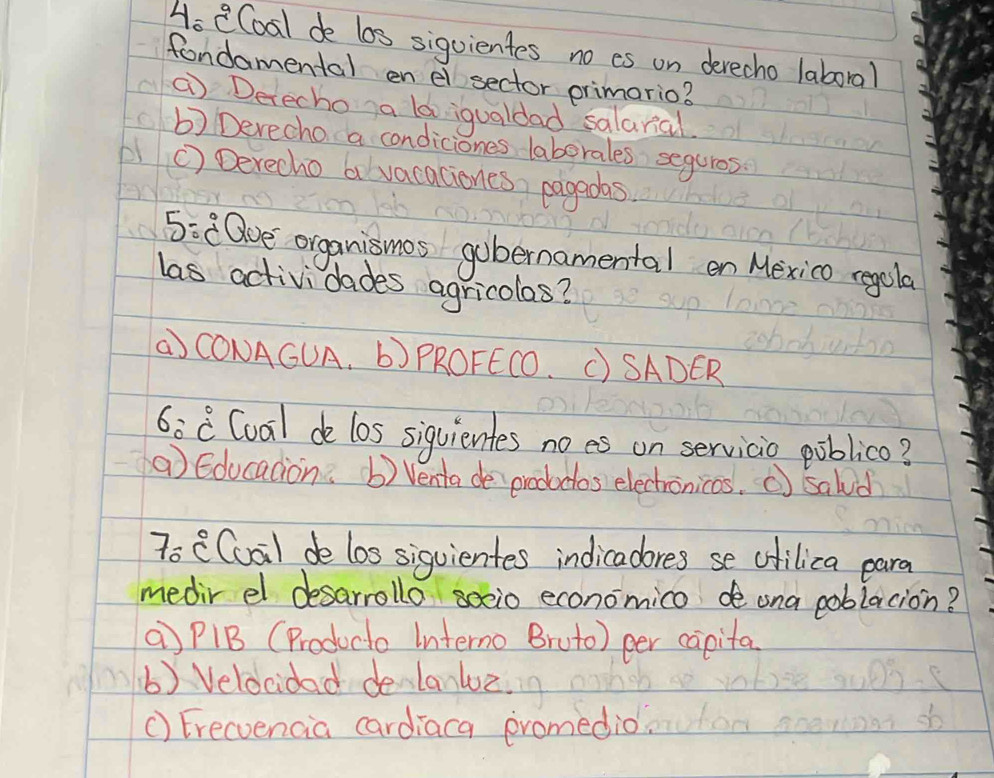 4. ¿Cual de los siguientes no es un derecho laboral
fundamental en el sector primario?
a) Derecho a la igualdad salarial.
b) Derecho a condiciones laborales seguros.
c) Derecho a vacaciones pagadas.
5. ¿Que organismos gubernamental en México regula
las actividades agricolas?
a) CONAGUA. b) PROFECO. c) SADER
6. ¿Cuál de los siguientes no es un servicio público?
a) Educación. b) Venta de productos electrónicos. c) Salud
7. ¿Cuál de los siguientes indicadores se utiliza para
medir el desarrollo socio económico de una población?
a) PIB (Producto Interno Bruto) per cápita
b) Velocidad de la luz.
c) Frecuencia cardíaca promedio.